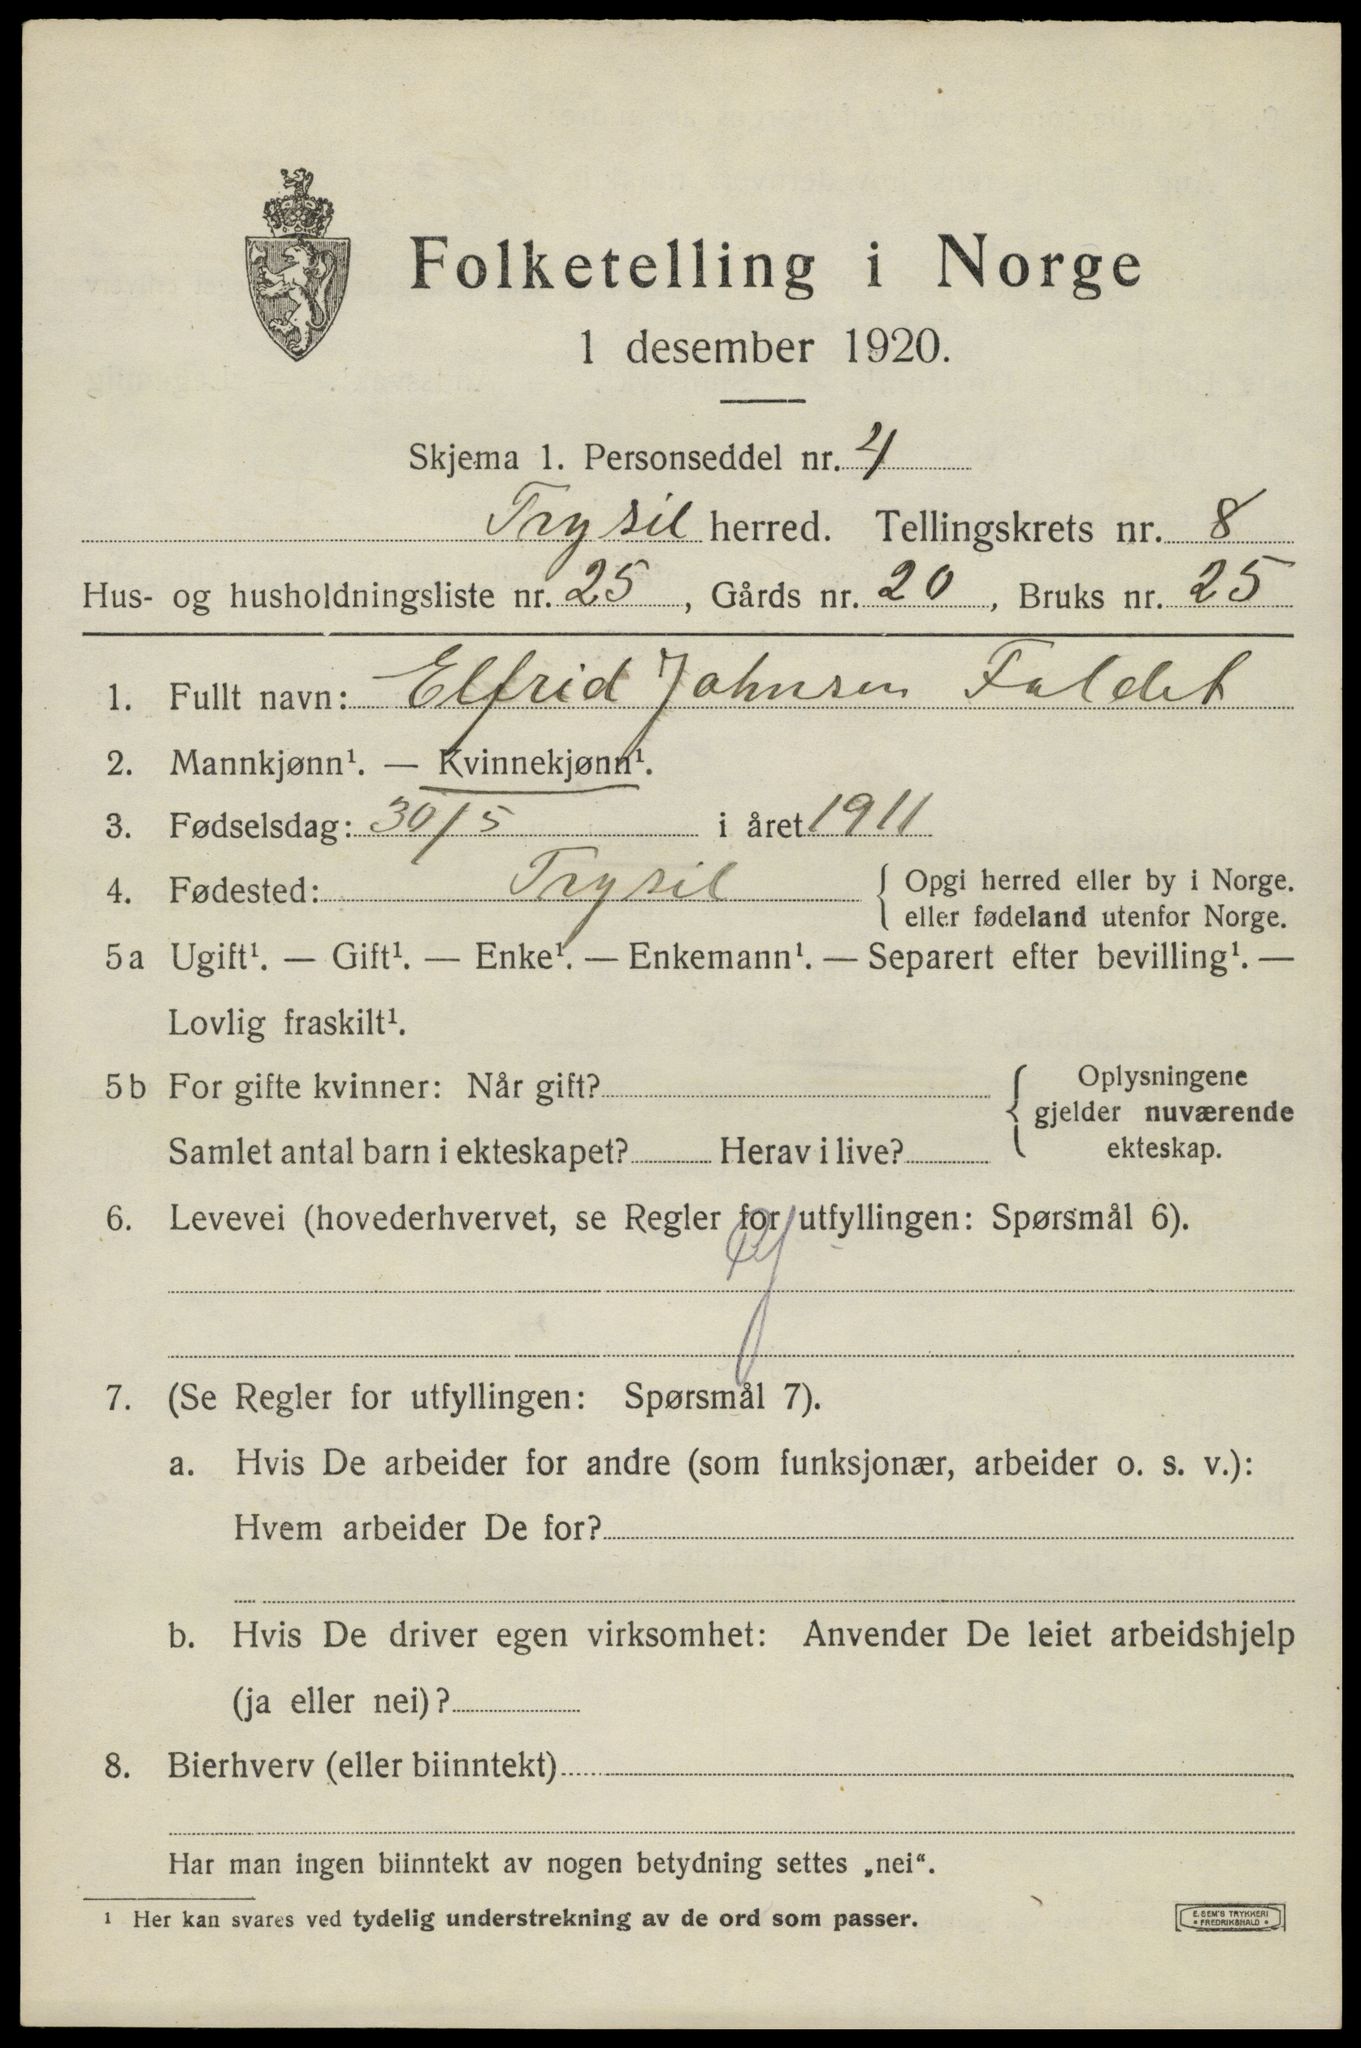 Folketelling i Norge
1 desember 1920.
Skjema 1. Personseddel nr. 4
Trysil herred. Tellingskrets nr. 8
Hus- og husholdningsliste nr. 25, Gårds nr. 20, Bruks nr. 25
1. Fullt navn: Elfrid Johnsen Faldet
2. Mannkjønn¹. — Kvinnekjønn¹.
3. Fødselsdag: 30/5 i året 1911
4. Fødested: Trysil { Opgi herred eller by i Norge.
eller fødeland utenfor Norge.
5a Ugift¹. — Gift¹. — Enke¹. — Enkemann¹. — Separert efter bevilling¹. —
Lovlig fraskilt¹.
5b For gifte kvinner: Når gift? { Oplysningene
gjelder nuværende
Samlet antal barn i ekteskapet? Herav i live? ekteskap.
6. Levevei (hovederhvervet, se Regler for utfyllingen: Spørsmål 6).
7. (Se Regler for utfyllingen: Spørsmål 7).
a. Hvis De arbeider for andre (som funksjonær, arbeider o. s. v.):
Hvem arbeider De for?
b. Hvis De driver egen virksomhet: Anvender De leiet arbeidshjelp
(ja eller nei)?
8. Bierhverv (eller biinntekt)
Har man ingen biinntekt av nogen betydning settes „nei“.
¹ Her kan svares ved tydelig understrekning av de ord som passer.
E. SEM'S TRYKKERI
• FREDRIKSHALD •